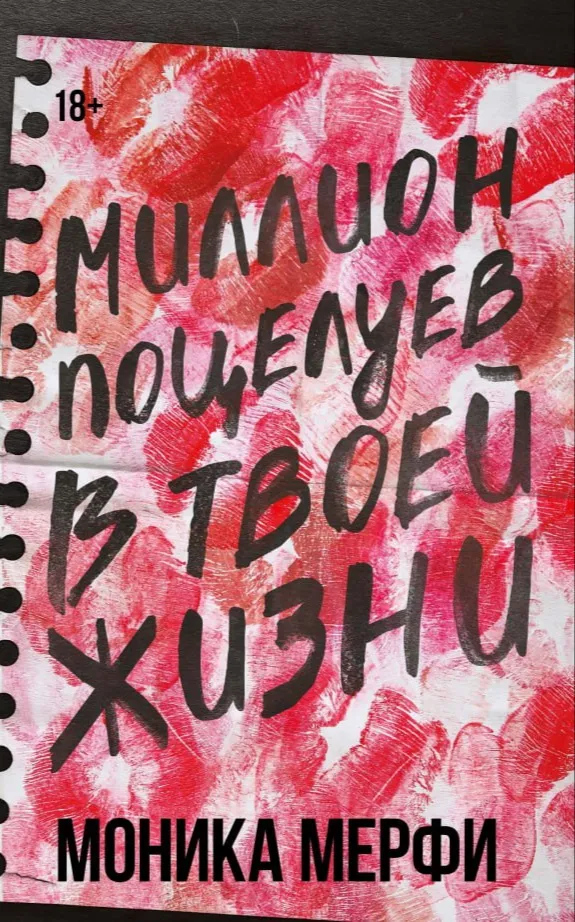 18+
МИЛЛИОН
ПОЦЕЛУЕВ
В ТВОЕЙ
ЖИЗНИ
МОНИКА МЕРФИ